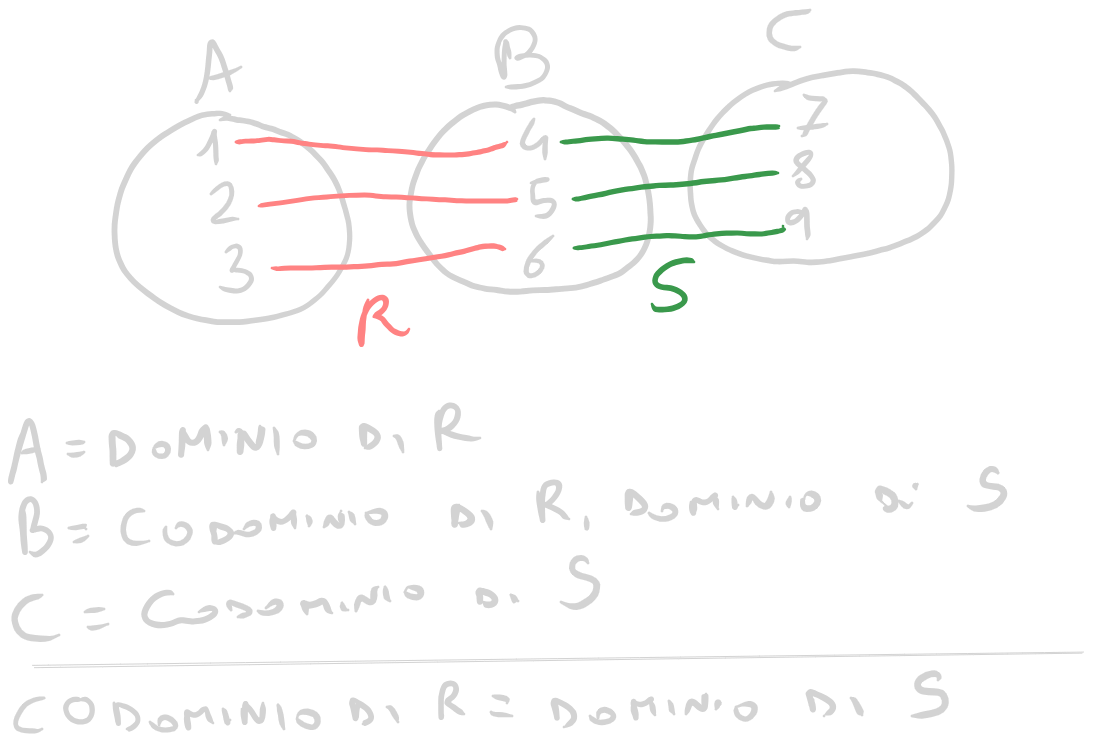 A B C
1 4 7
2 5 8
3 6 9
R S
A = DOMINIO DI R
B = CODOMINIO DI R, DOMINIO DI S
C = CODOMINIO DI S
CODOMINIO DI R = DOMINIO DI S